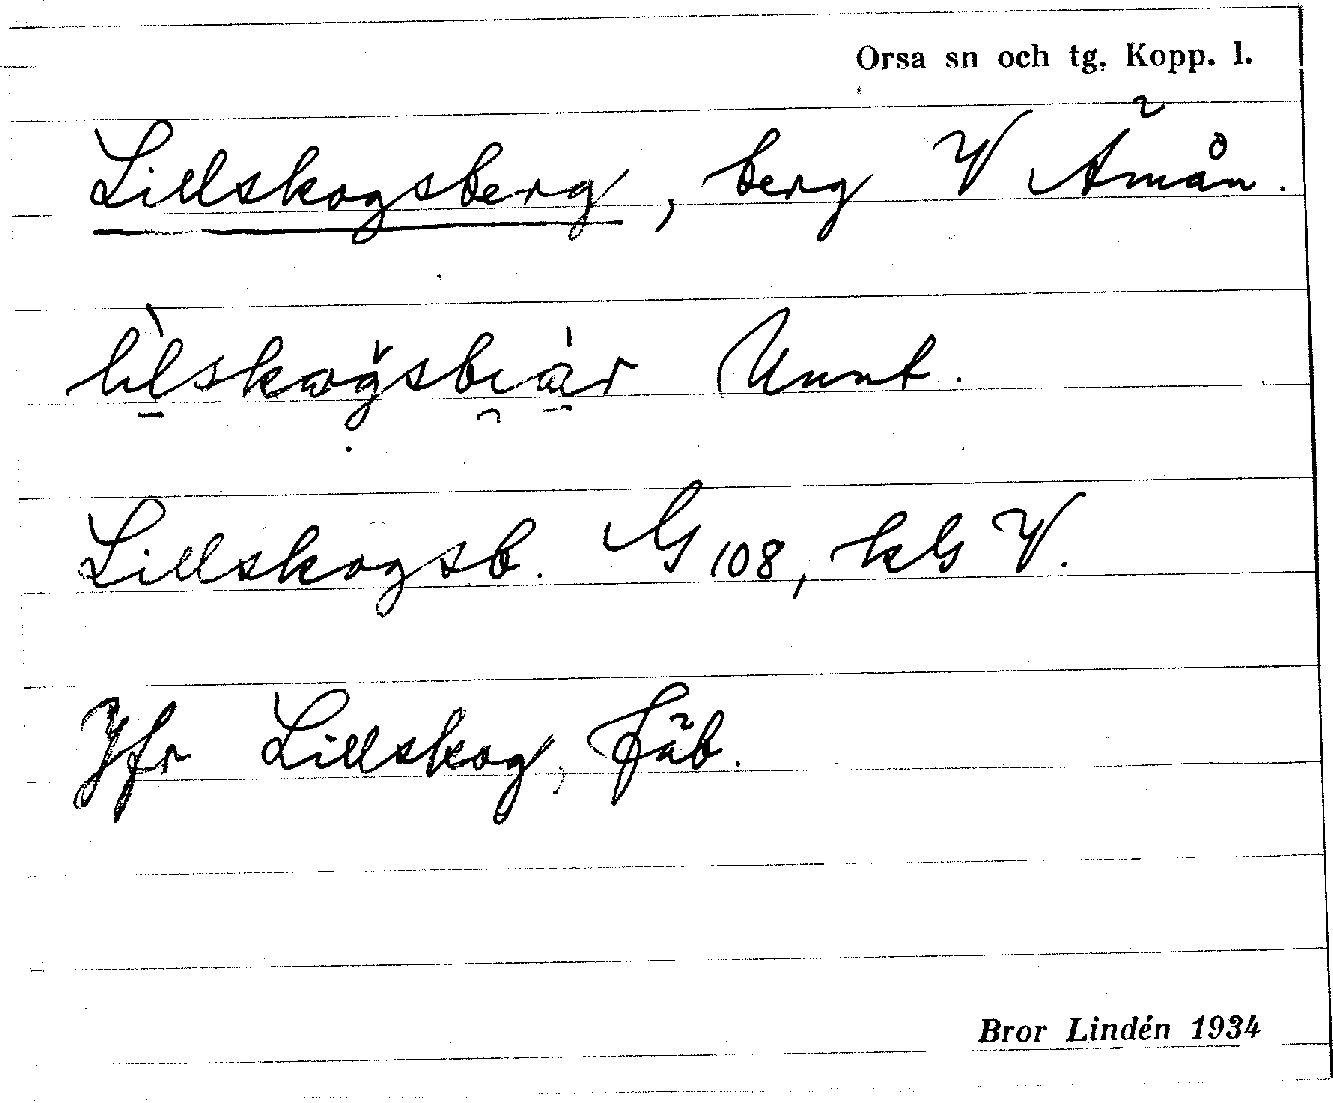 Orsa sn och tg. Kopp. l.
Lillskogsberg, berg V Ämån.
Lillskogsb. G 108, kG V.
Jfr Lillskog, fäb.
Bror Lindén 1934